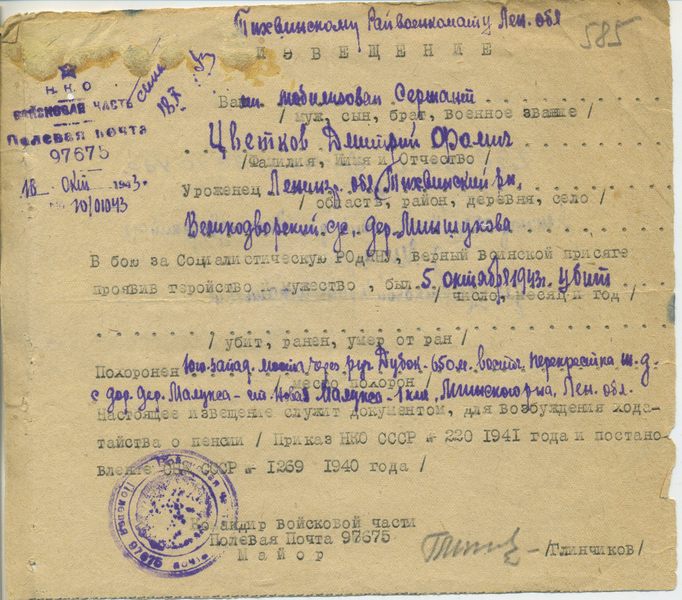 Тихвинскому Райвоенкомату Лен. обл
585
ИЗВЕЩЕНИЕ
Н.К.О
ВОЙСКОВАЯ ЧАСТЬ
Полевая почта
97675
18 окт 1943 г.
10/01043
18.X
Ваш мобилизован Сержант
/ муж, сын, брат, военное звание /
Цветков Дмитрий Фомич
/Фамилия, Имя и Отчество /
Уроженец Ленинг. обл. Тихвинский р-н,
/ область, район, деревня, село /
Великодворский с/с. дер. Мишукова
В бою за Социалистическую РОДИНУ, верный воинской присяге
проявив геройство и мужество , был 5 октября 1943г. убит
/ число, месяц и год /
/ убит, ранен, умер от ран /
Похоронен Юго-запад. моста через руч. Дубок - 650 м. восточ. перекрестка ж.д
/ место похорон /
с дор. дер. Малукса - ст. Новая Малукса - 1 км. Мгинского р-на, Лен. обл.
Настоящее извещение служит документом, для возбуждения хода-
тайства о пенсии / Приказ НКО СССР № 220 1941 года и постано-
вление СНК СССР № 1269 1940 года /
Командир войсковой части
Полевая Почта 97675
Майор
/Глинчиков/